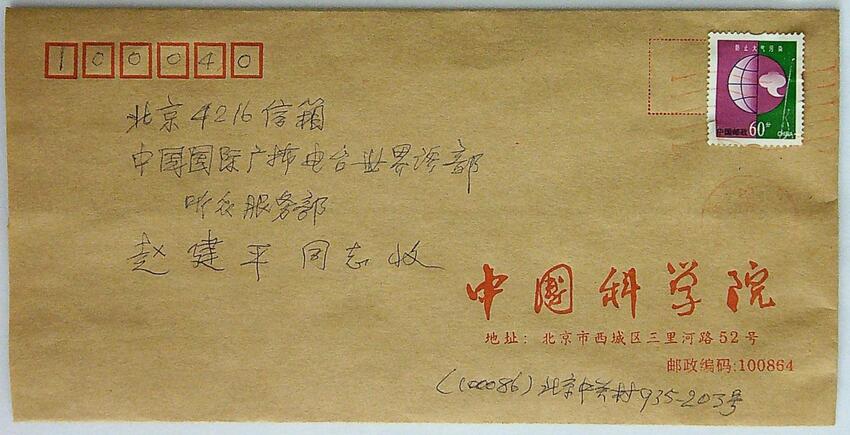 100040
防止大气污染
中国邮政 60分 CHINA
北京4216信箱
中国国际广播电台世界语部
听众服务部
赵建平同志收
中国科学院
地址：北京市西城区三里河路52号
邮政编码:100864
(100086)北京中关村935-203号